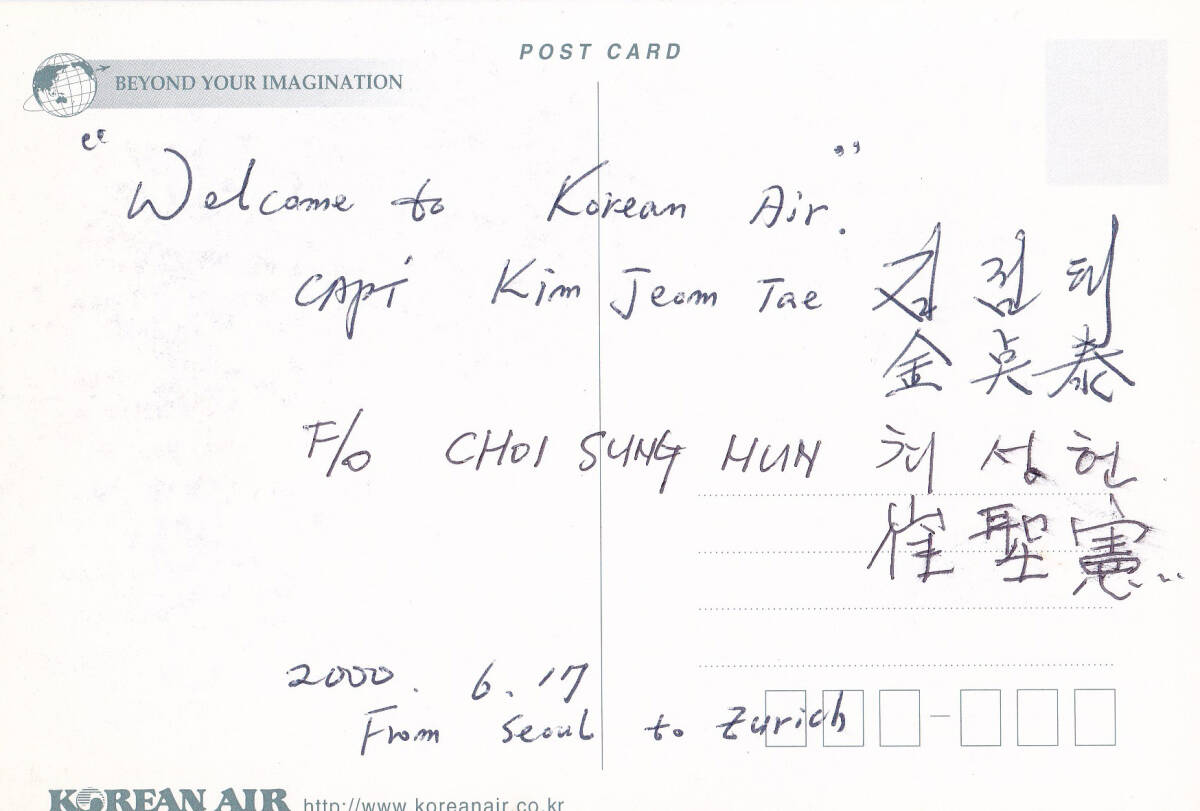 POST CARD
BEYOND YOUR IMAGINATION
“Welcome to Korean Air.”
CAPT' Kim Jeom Tae 김점태
金点泰
F/O CHOI SUNG HUN 최성헌
崔聖憲
2000. 6. 17
From Seoul to Zurich
KOREAN AIR http://www.koreanair.co.kr